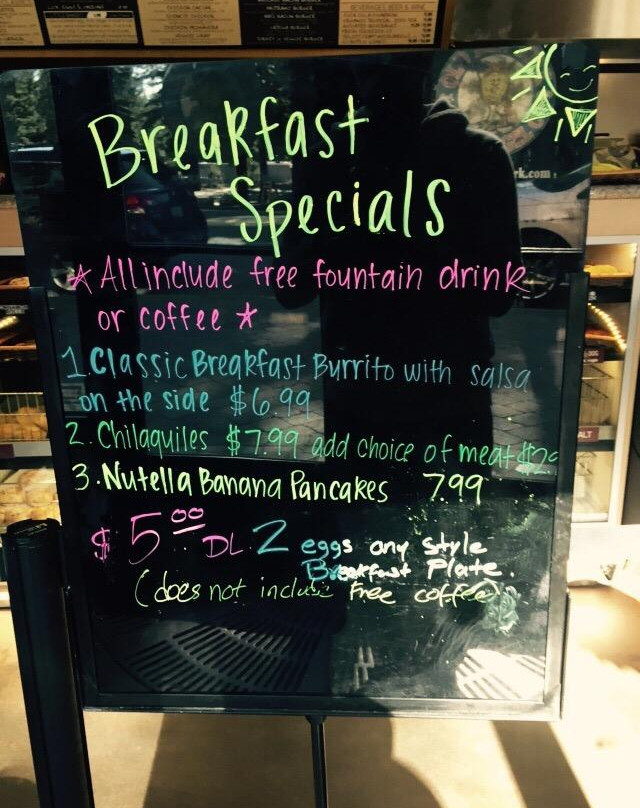 BEVERAGES, BEER & WINE
Breakfast
Specials
rk.com
* All include free fountain drink
or coffee *
1. Classic Breakfast Burrito with salsa
on the side $6.99
2. Chilaquiles $7.99 add choice of meat $2
3. Nutella Banana Pancakes 7.99
$5.00 DL 2 eggs any style
Breakfast Plate.
(does not include Free coffee)